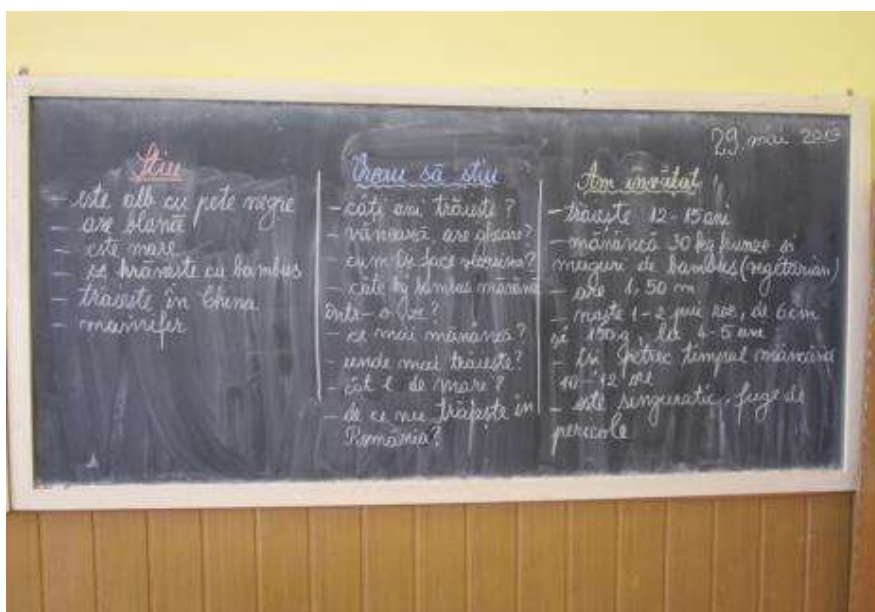 29. mai
Știu
- este alb cu pete negre
- are blană
- este mare
- se hrănește cu bambus
- trăiește în China
- mamifer
Vreau să știu
- câți ani trăiește?
- vânează, are gheare?
- cum își face
- câte kg bambus mănâncă
într-o zi?
- ce mai mănâncă?
- unde mai trăiește?
- cât e de mare?
- de ce nu trăiește în
România?
Am învățat
- trăiește 12-15 ani
- mănâncă 30 kg frunze și
muguri de bambus (vegetarian)
- are 1,50 m
- naște 1-2 pui roz, de 6 cm
și 150 g, la 4-5 ani
- își petrec timpul mâncând
10-12 ore
- este singuratic, fuge de
pericole